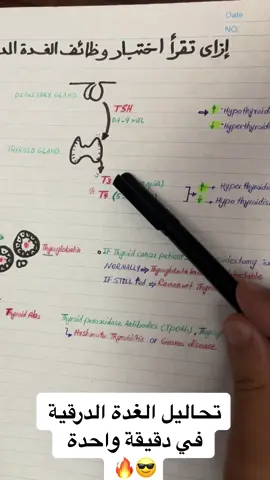 Date
NO.
إزاى تقرأ اختبار وظائف الغدة الد
PITUITARY GLAND
TSH
0.4-4 mU/L
↑ Hypothyroid
↓ Hyperthyroid
THYROID GLAND
T3
T4
↑ Hyperthyroidi
↓ Hypothyroidis
Thyroglobulin
IF Thyroid cancer patient
NORMALLY
IF STILL
Thyroid Abs
Thyroid peroxidase Antibodies (TPOAb), Thyrog
↳ Hashimoto Thyroiditis or Graves disease
تحاليل الغدة الدرقية
في دقيقة واحدة
😎🔥